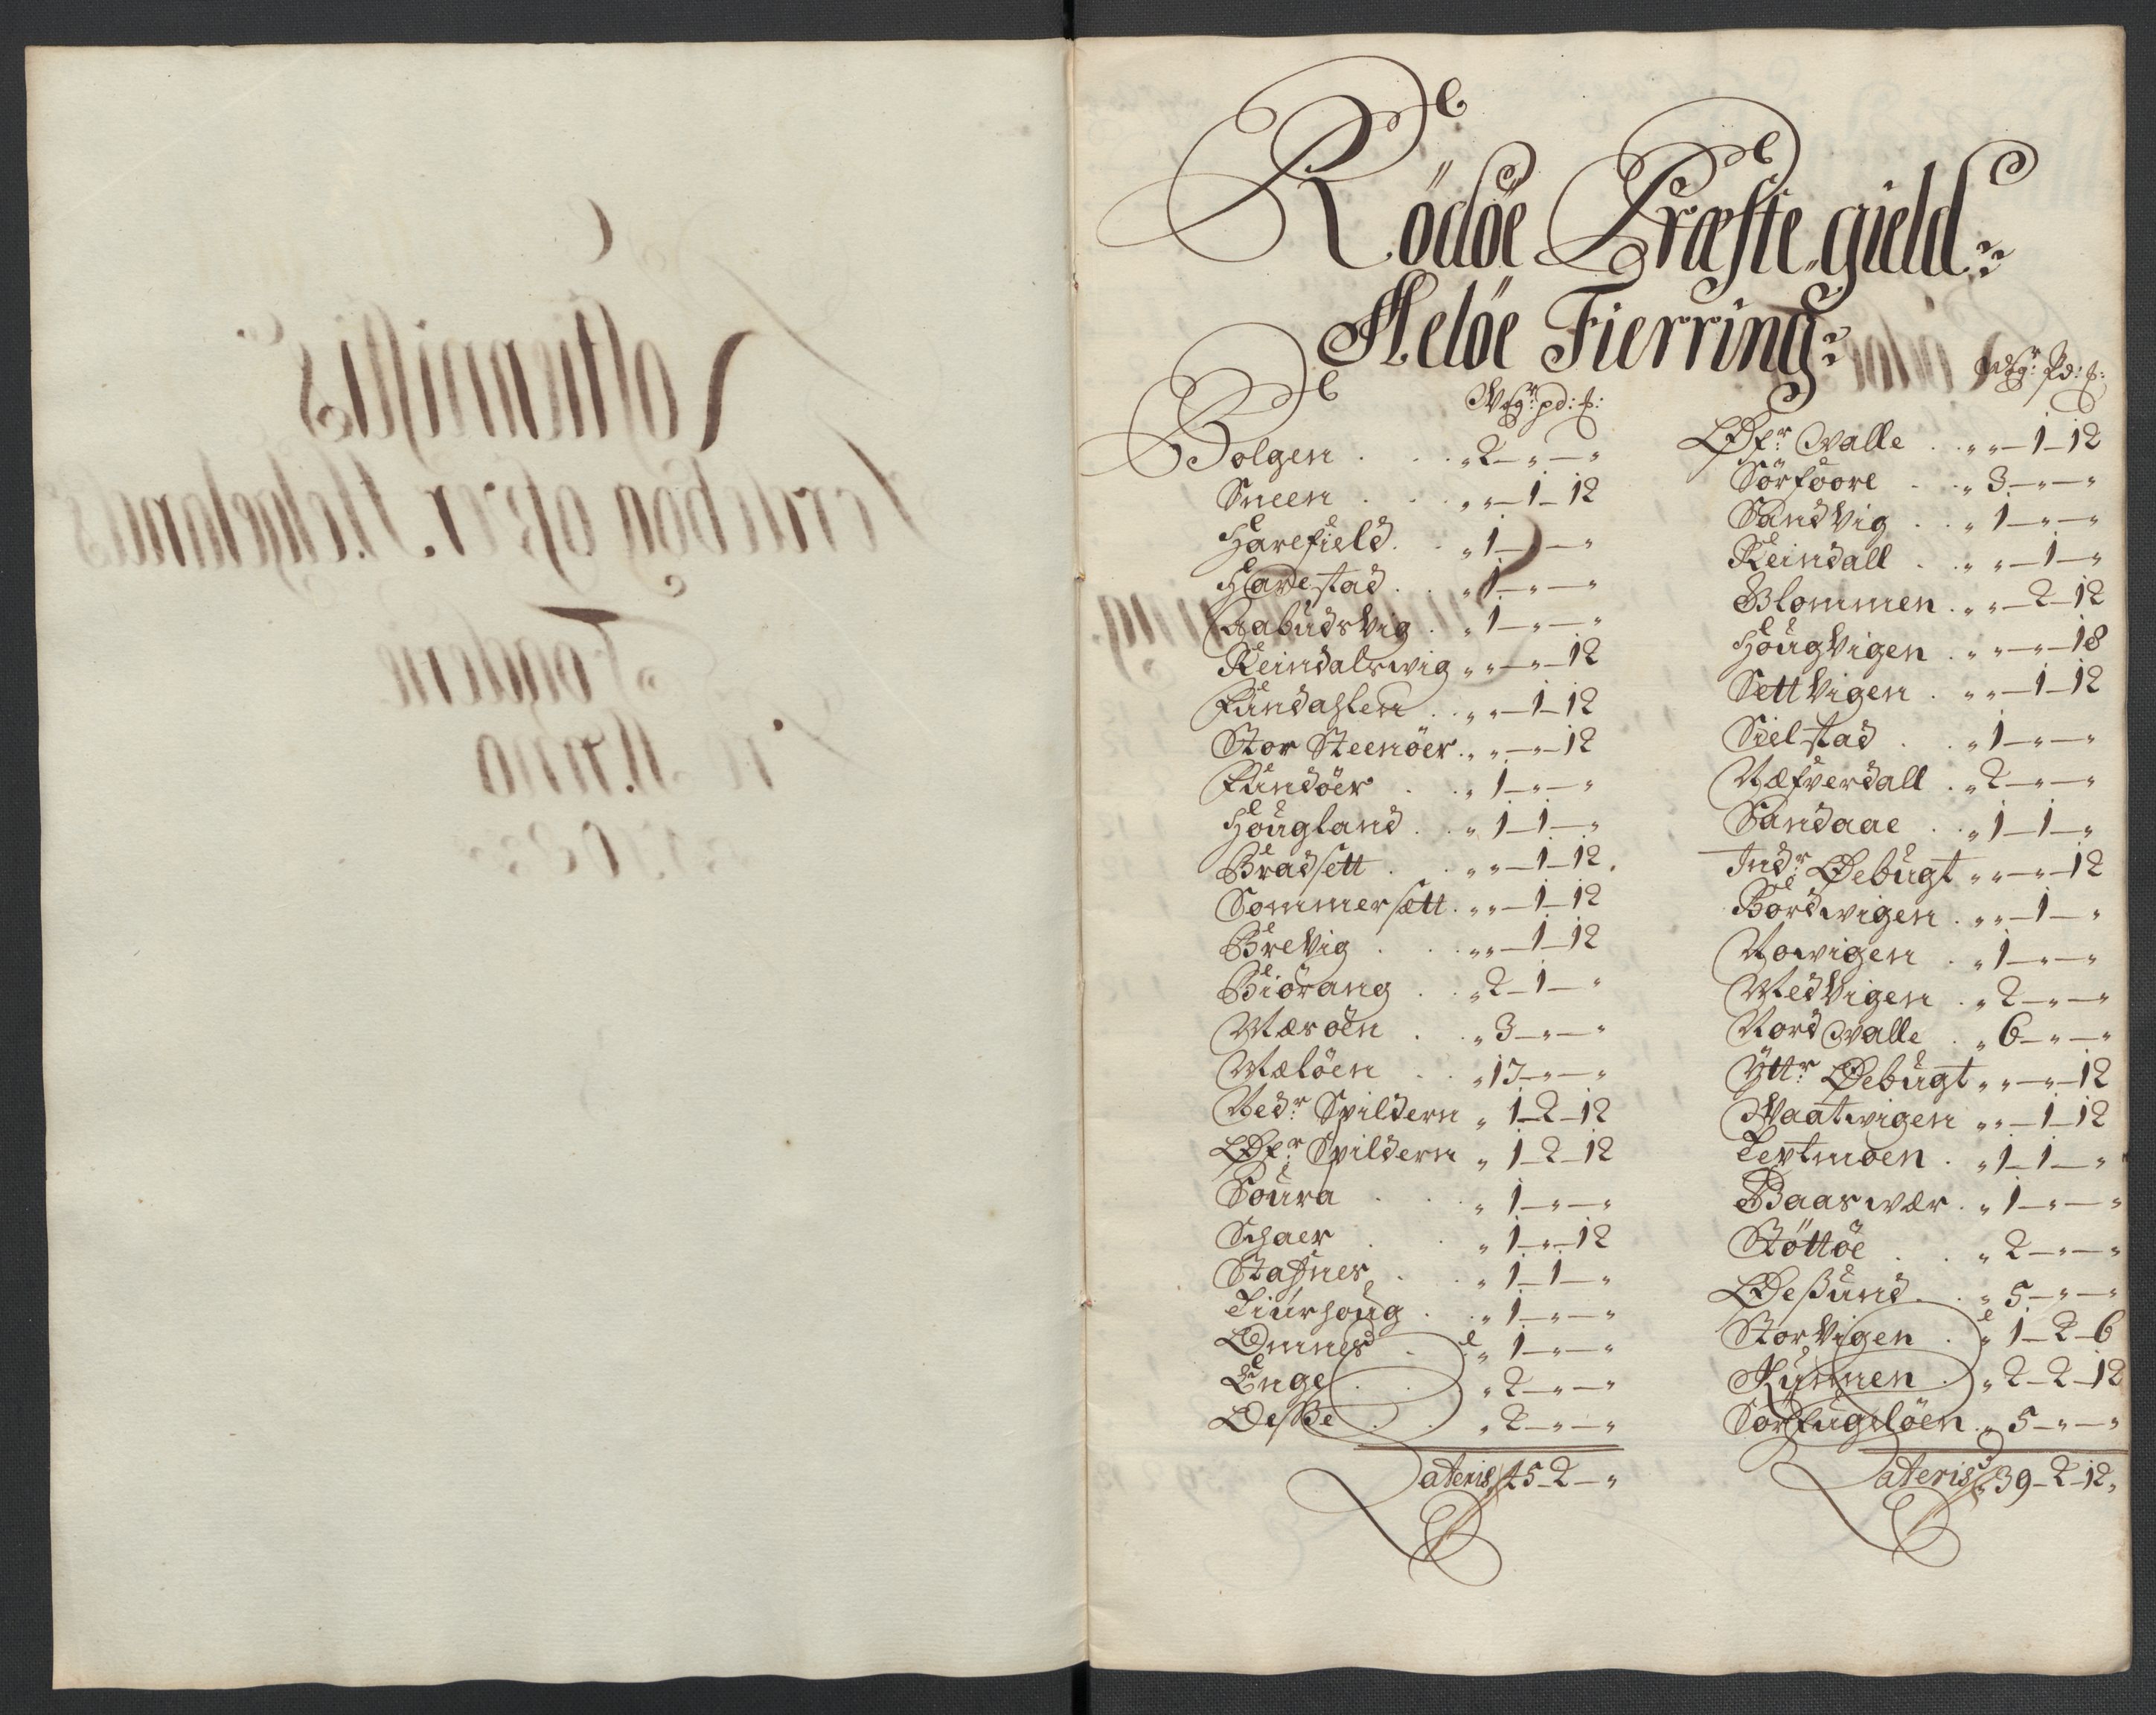 Rödöe Præste gield
Meløe Fierring
Wog: pd: ℔:
Bolgen . . „ 2 – „ – „
Sneen . . „ „ – 1 – 12
Harefield . . „ 1 – „ – „
Harestad . . „ 1 – „ – „
Aabudsvig . „ 1 – „ – „
Reindalswig „ „ – „ – 12
Fundahlen . „ „ – 1 – 12
Stor Steenöer . „ „ – „ – 12
Fundöer . . „ 1 – „ – „
Hougland . . „ 1 – 1 – „
Bradsett . . „ „ – 1 – 12
Sommersætt . „ „ – 1 – 12
Brevig . . „ „ – 1 – 12
Biörang . . „ 2 – 1 – „
Mæsöen . . „ 3 – „ – „
Mælöen . . „ 17 – „ – „
Nedr Spildern „ 1 – 2 – 12
Øfr Spildern „ 1 – 2 – 12
Soura . . „ 1 – „ – „
Schaer . . „ 1 – „ – 12
Stafnes . . „ 1 – 1 – „
Tiurhoug . . „ 1 – „ – „
Omnes . . „ 1 – „ – „
Enge . . „ 2 – „ – „
. . „ 2 – „ – „
Lateris „ 45 – 2 – „
Wog: Pd: ℔:
Øfr Walle . „ „ – 1 – 12
Sörfoore . . „ 3 – „ – „
Sandvig . . „ 1 – „ – „
Reindall . . „ „ – 1 – „
Blommen . „ „ – 2 – 12
Hougvigen . „ „ – „ – 18
Settvigen . „ „ – 1 – 12
Sielstad . . „ 1 – „ – „
Næfverdall . „ 2 – „ – „
Sandaae . . „ 1 – 1 – „
Indr Øebugt „ „ – „ – 12
Bordwigen . „ „ – 1 – „
Nowigen . „ 1 – „ – „
Medvigen . „ 2 – „ – „
Nord Walle . „ 6 – „ – „
Yttr Øebugt „ „ – „ – 12
Waatwigen „ „ – 1 – 12
Textmoen . „ 1 – 1 – „
Baaswær . „ 1 – „ – „
Stöttöe . . „ 2 – „ – „
Øesund . . „ 5 – „ – „
Storvigen . „ 1 – 2 – 6
Kunnen . „ 2 – 2 – 12
Sörfugelöen . „ 5 – „ – „
Lateris „ 39 – 2 – 12